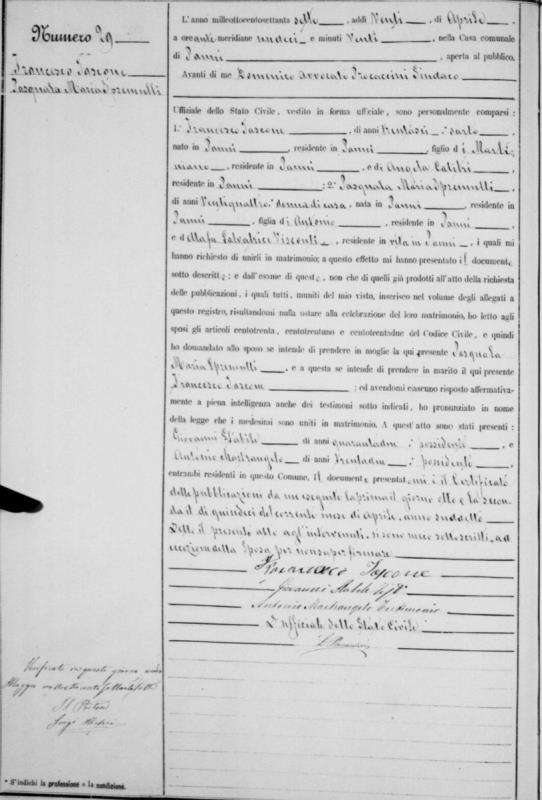 Numero 29
Francesco Tascone
Pasquala Maria Spremulli
L'anno milleottocentosettanta sette, addì Venti, di Aprile,
a ore ante meridiane undeci e minuti Venti, nella Casa comunale
di Panni, aperta al pubblico.
Avanti di me Domenico Avvocato Procaccini Sindaco
Uffiziale dello Stato Civile, vestito in forma uffiziale, sono personalmente comparsi:
1.° Francesco Tascone, di anni trentasei, sarto,
nato in Panni, residente in Panni, figlio di Marti-
niano, residente in Panni, e di Angela
residente in Panni; 2.° Pasquala Maria Spremulli,
di anni Ventiquattro, donna di casa, nata in Panni, residente in
Panni, figlia di Antonio, residente in Panni,
e di Visconti, residente in vita in Panni, i quali mi
hanno richiesto di unirli in matrimonio; a questo effetto mi hanno presentato il documento
sotto descritto; e dall'esame di questo, non che di quelli già prodotti all'atto della richiesta
delle pubblicazioni, i quali tutti, muniti del mio visto, inserisco nel volume degli allegati a
questo registro, risultandomi nulla ostare alla celebrazione del loro matrimonio, ho letto agli
sposi gli articoli centotrenta, centotrentuno e centotrentadue del Codice Civile, e quindi
ho domandato allo sposo se intende di prendere in moglie la qui presente Pasquala
Maria Spremulli, e a questa se intende di prendere in marito il qui presente
Francesco Tascone; ed avendomi ciascuno risposto affermativa-
mente a piena intelligenza anche dei testimoni sotto indicati, ho pronunziato in nome
della legge che i medesimi sono uniti in matrimonio. A quest'atto sono stati presenti:
Giovanni Stabile di anni quarantadue, possidente, e
Antonio Mastrangelo di anni trentadue, possidente,
entrambi residenti in questo Comune. Il documento presentatomi è il Certificato
delle pubblicazioni da me eseguite la prima il giorno otto e la secon-
da il dì quindici del corrente mese di Aprile, anno suddetto
Letto il presente atto agl'intervenuti, si sono meco sottoscritti, ad
eccezion della Sposa per non saper firmare
Francesco Tascone
Giovanni Stabile
Antonio Mastrangelo Testimonio
L'uffiziale dello Stato Civile
Il Pretore
* S'indichi la professione o la condizione.